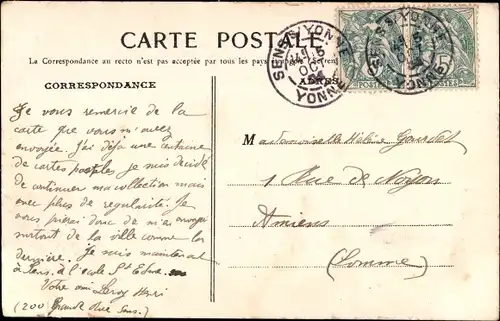 CARTE POSTALE
La Correspondance au recto n'est pas acceptée par tous les pays
CORRESPONDANCE
SENS-YONNE
OCT
04
YONNE
POSTES
5
Je vous remercie de la
carte que vous m'avez
envoyée. J'ai déjà une centaine
de cartes postales je suis décidé
de continuer ma collection mais
avec plus de régularité. Je
vous prierai donc de m'en envoyer
surtout de la ville comme la
dernière. Je suis maintenant
à Sens à l'école St Edme
Votre ami Leroy Henri
(200 Grande Rue Sens)
Mademoiselle Hélène Gourdet
1 Rue de Noyon
Amiens
(Somme)